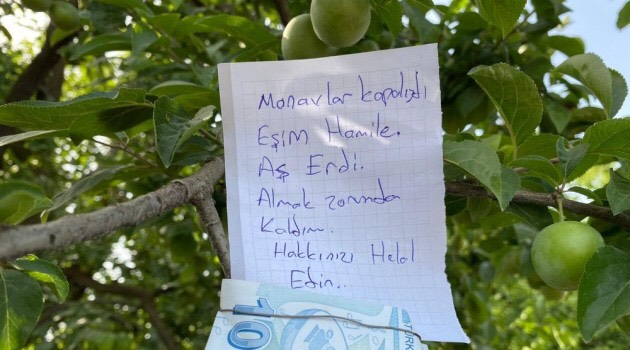 Manavlar kapalıydı
Eşim Hamile.
Aş Erdi.
Almak zorunda
Kaldım.
Hakkınızı Helal
Edin..
10
TÜRK